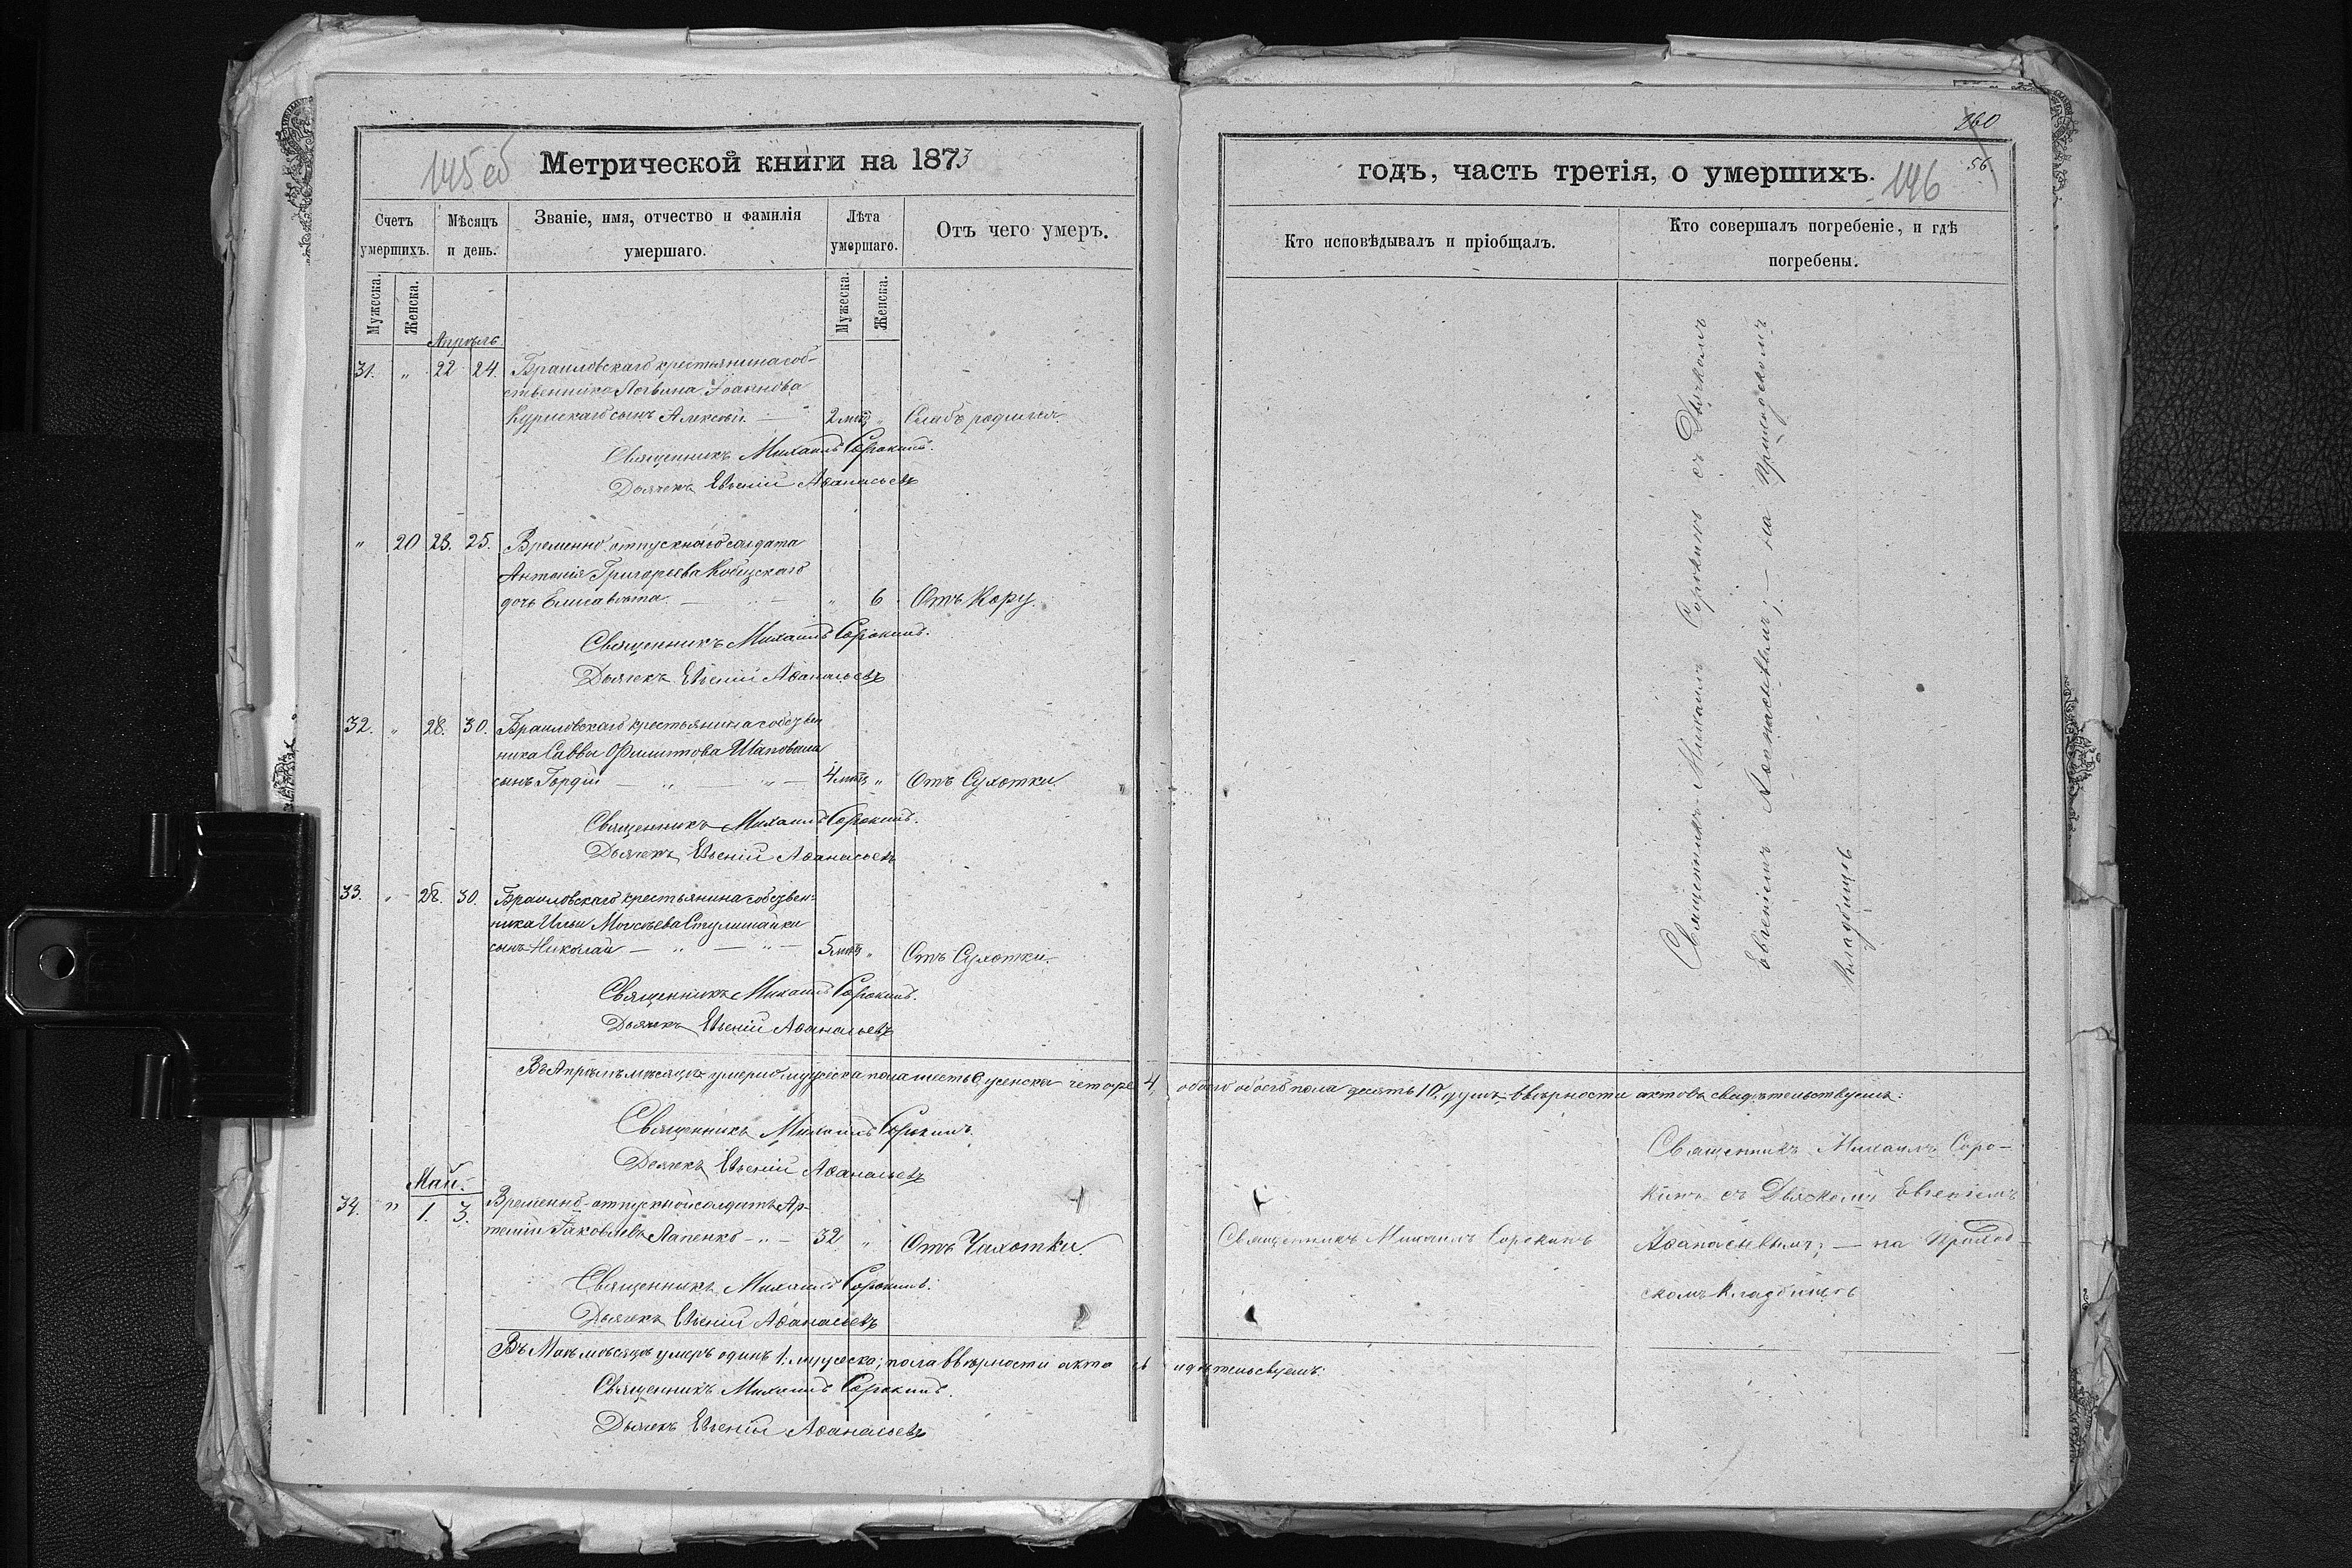 145 об Метрической книги на 1873
Счетъ умершихъ.
Мѣсяцъ и день.
Званіе, имя, отчество и фамилія умершаго.
Лѣта умершаго.
Отъ чего умеръ.
Мужеска. Женска.
Мужеска. Женска.
Апрѣль
31. „ 22 24. Браиловскаго крестьянина соб-
ственника Логвина Іоаннова
сынъ Алексѣй. — 2 мѣц „ Слабъ родился.
Священникъ Михаилъ Сорокинъ.
Дьячекъ Евгеній Аѳанасьевъ
„ 20 23. 25. Временно отпускнаго солдата
Антонія Григорьева Кобецскаго
дочь Елисавета. — „ — „ 6 Отъ Кору.
Священникъ Михаилъ Сорокинъ.
Дьячекъ Евгеній Аѳанасьевъ
32. „ 28. 30. Браиловскаго крестьянина собствен
ника Саввы Филиппова Шаповала
сынъ Гордій — „ — „ — 4 мѣц „ Отъ Сухотки.
Священникъ Михаилъ Сорокинъ.
Дьячекъ Евгеній Аѳанасьевъ
33. „ 28. 30. Браиловскаго крестьянина собствен-
ника Ильи Моисѣева
сынъ Николай — „ — „ — 5 мѣц „ Отъ Сухотки.
Священникъ Михаилъ Сорокинъ.
Дьячекъ Евгеній Аѳанасьевъ
Въ Апрѣлѣ мѣсяцѣ умерло мужеска пола шесть 6, женска четыре 4, обоего пола десять 10. душъ, ввѣрности актовъ свидѣтельствуемъ:
Священникъ Михаилъ Сорокинъ.
Дьячекъ Евгеній Аѳанасьевъ
Май.
34. „ 1. 3. Временно-отпускной солдатъ Ар-
темій Іаковлевъ Лапенко — „ — 32 „ Отъ Чахотки.
Священникъ Михаилъ Сорокинъ.
Дьячекъ Евгеній Аѳанасьевъ
Въ Маѣ мѣсяцѣ умеръ одинъ 1. мужеска, пола ввѣрности акта свидѣтельсвуемъ:
Священникъ Михаилъ Сорокинъ.
Дьячекъ Евгеній Аѳанасьевъ
260
56.
годъ, часть третія, о умершихъ. 146
Кто исповѣдывалъ и пріобщалъ.
Кто совершалъ погребеніе, и гдѣ погребены.
Священникъ Михаилъ Сорокинъ съ Дьячкомъ
Евгеніемъ Аѳанасьевымъ; — на Приходскомъ
Кладбищѣ
Священникъ Михаилъ Сорокинъ
Священникъ Михаилъ Соро-
кинъ съ Дьячкомъ Евгеніемъ
Аѳанасьевымъ; — на Приход-
скомъ Кладбищѣ